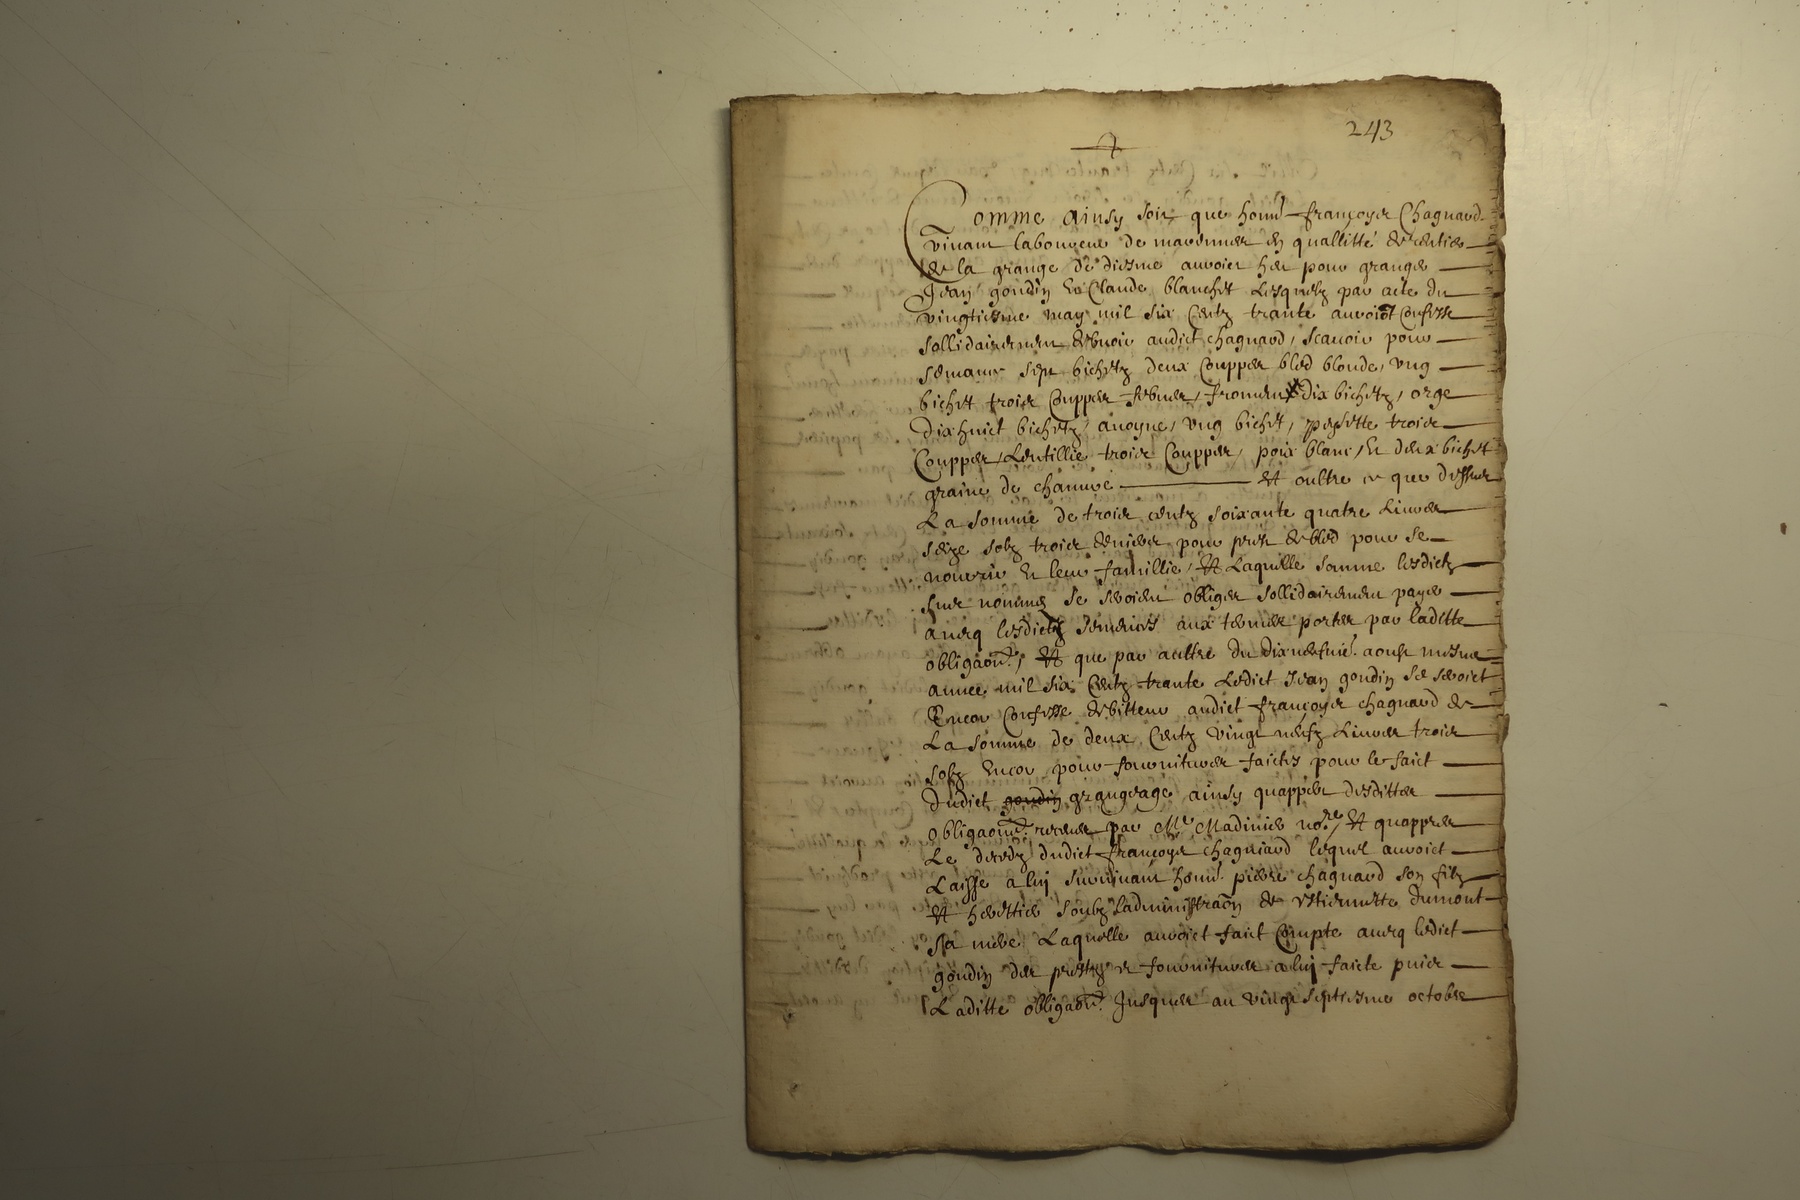 243
Comme ainsy soit que hon^d françoys Chagnard
vivant laboureur de maronner en quallitté de rentier
de la grange de diesme auroit pour granger
Jean goudin et Claude blanchet lesquelz par acte du
vingtiesme may mil six Centz trante auroiet Confesse
sollidairement debuoir audict chagnard, scauoir pour
semance sept bichetz deux Couppes bled blonde, ung
bichet troics Couppes febues, froment dix bichetz, orge
Dix huict bichetz, auoyne, ung bichet, pesette troics
Couppes, Lentillie troics Couppes, poix blanc, Et deux bichet
graine de chanuve Et oultre ce que dessus
La somme de troics centz soixante quatre Liures
seize solz troics deniers pour prest de bled pour se
nourrir Et leur famillie, Et Laquelle somme lesdictz
sus nommes se seroient obliges sollidairement payer
auecq lesdictz semences aux termes portes par laditte
obligaon, Et que par aultre du dix neufuie aoust mesme
annee mil six Centz trante Ledict Jean goudin se seroict
Encor Confesse debitteur audict françoys chagnard de
La somme de deux Centz vingt neufz Liures troics
solz Encor pour fournitures faictes pour le faict
Dudict goudin grangeage ainsy quappert desdittes
obligaons receues par M^e Madinier no^re, Et quappres
Le decedz dudict françoys chagniard lequel auroict
Laisse a luy suruiuant hon^d pierre chagnard son filz
Et herettier soubz ladministraon de estiennette Dumont
sa mere Laquelle auroict faict Compte auecq ledict
goudin des prestz et fournitures a luy faicte puis
Laditte obligaon Jusques au vingt septiesme octobre